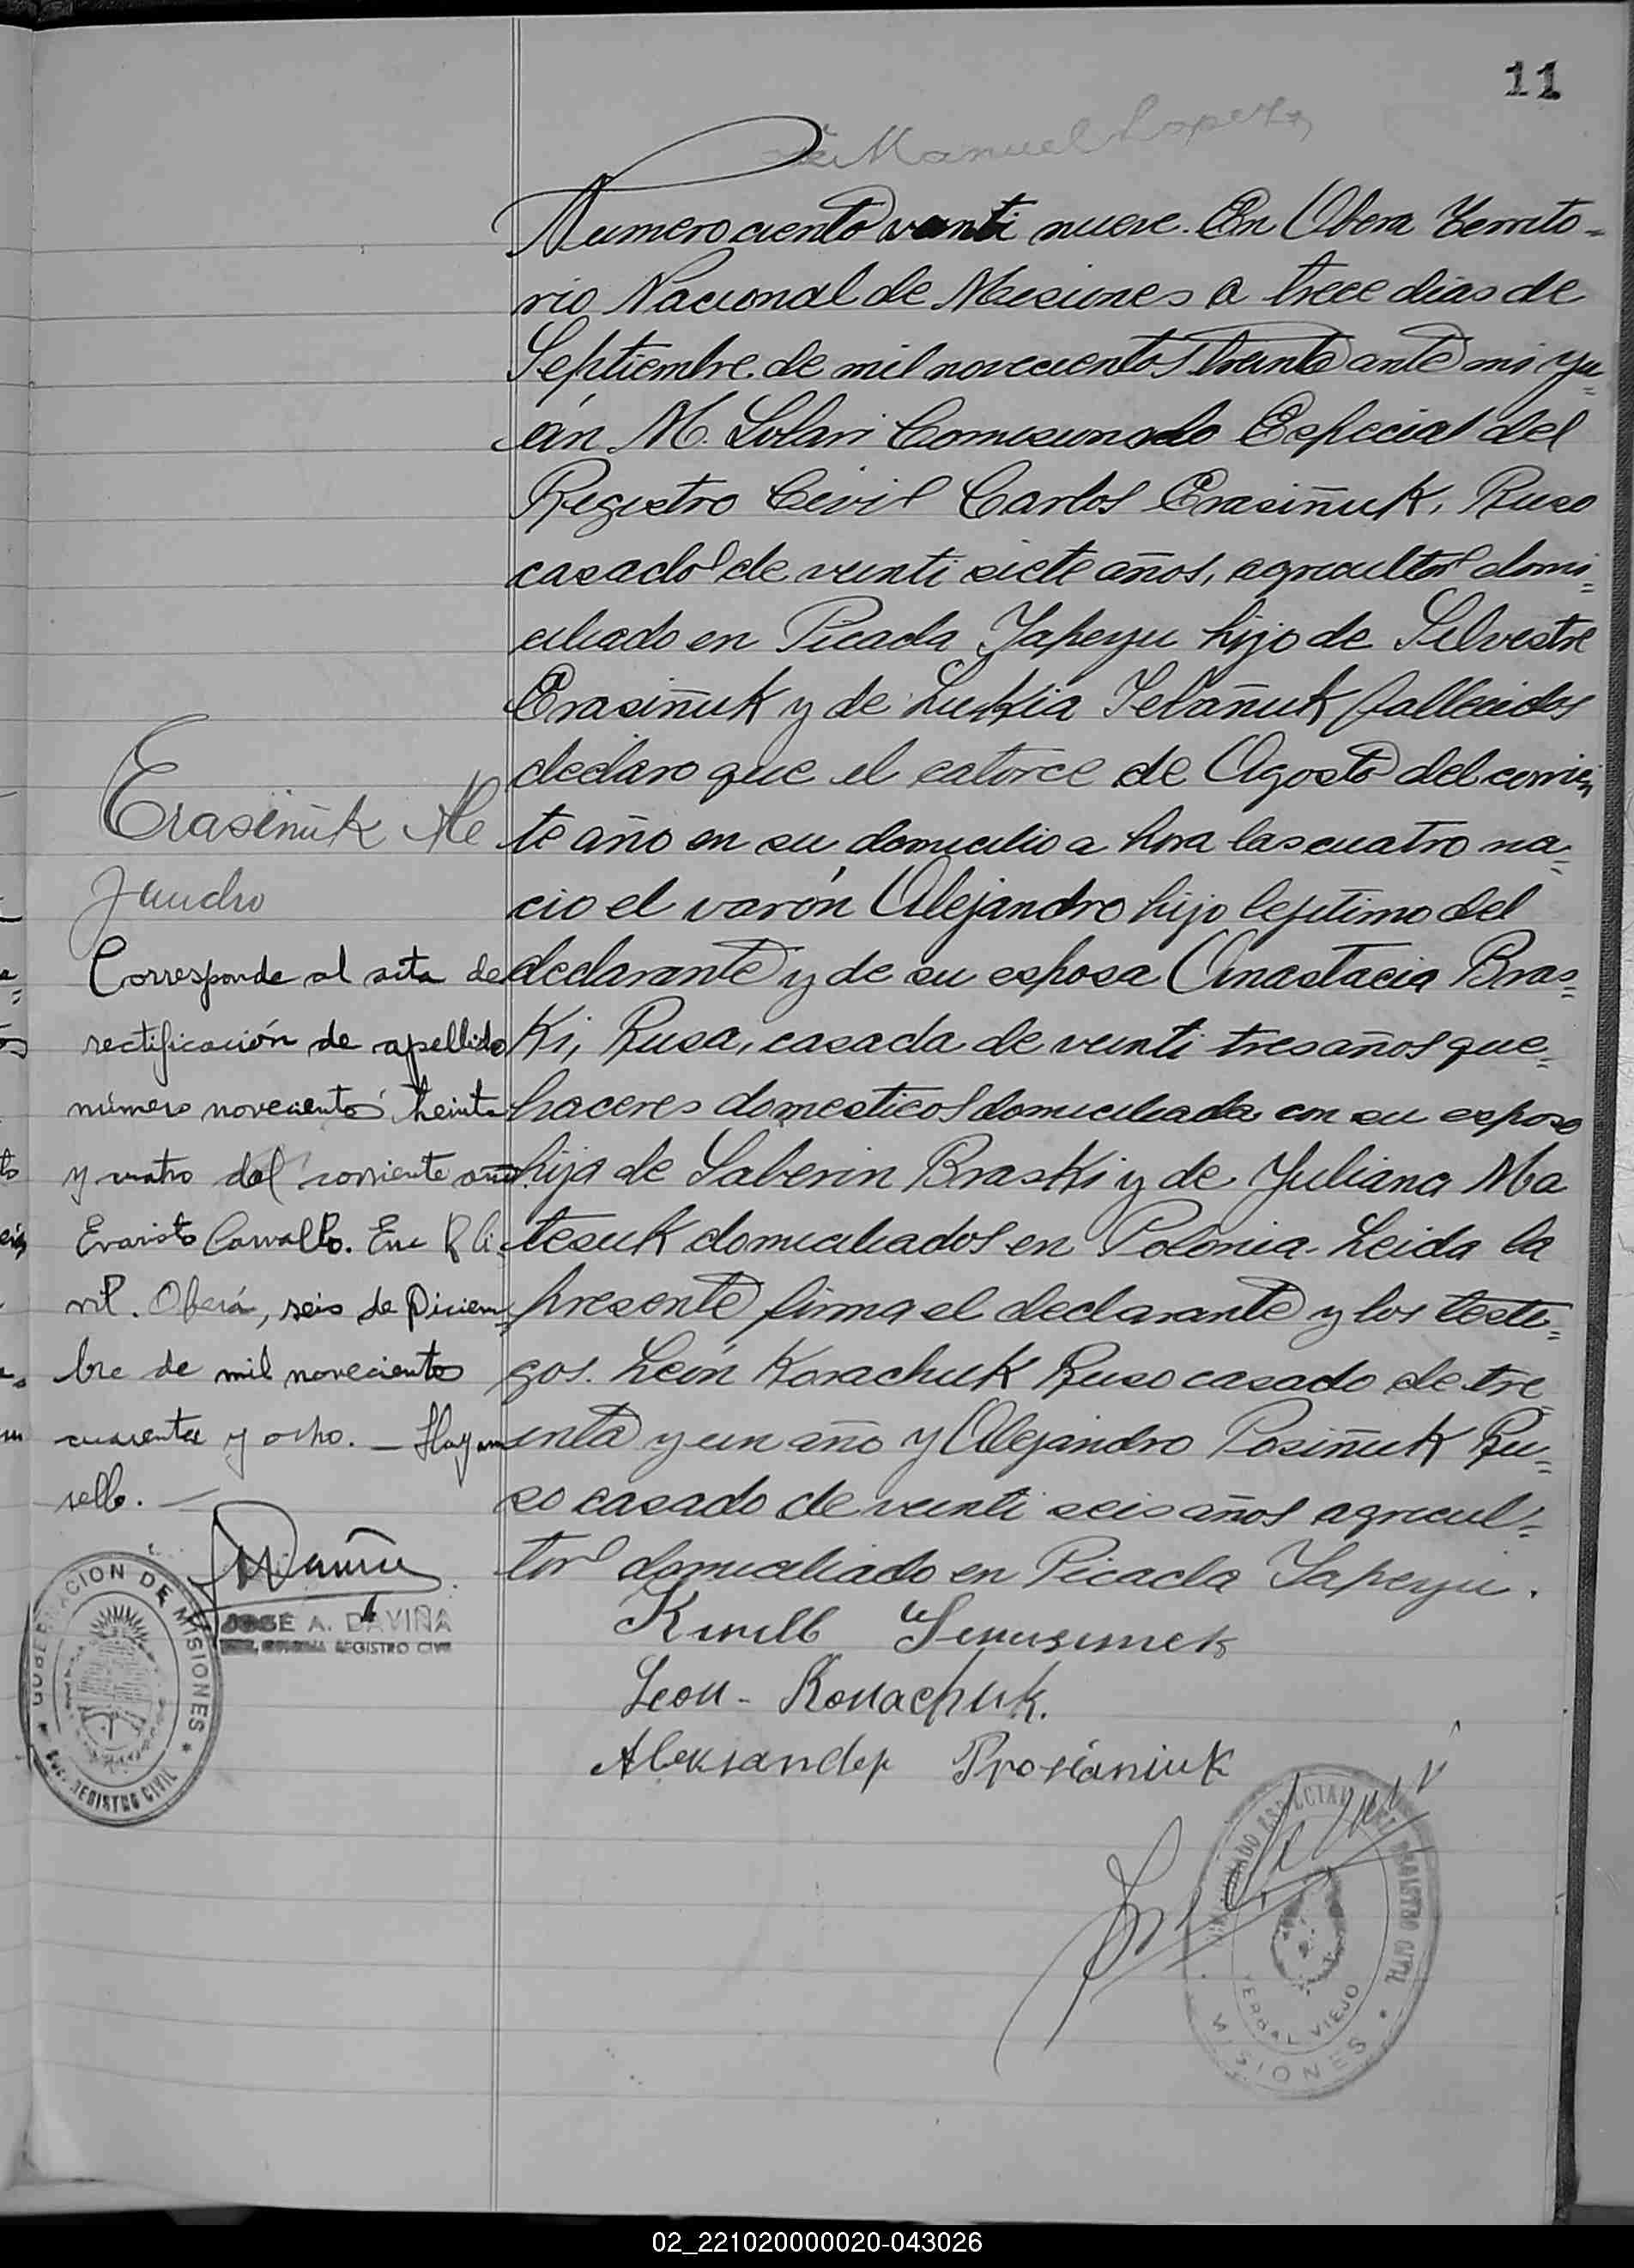 11
Manuel Lopez
Numero ciento venti nueve. En Obera Territo-
rio Nacional de Misiones a trece dias de
Septiembre de mil novecientos treinta ante mi Ju=
án M. Solari Comisionado Especial del
Registro Civil Carlos Erasiñuk, Ruso
casado de veinti siete años, agricultor domi=
ciliado en Picada Yapeyu hijo de Silvestre
Erasiñuk y de Lukia Telañuk fallecidos
declaro que el catorce de Agosto del corrien
te año en su domicilio a hora las cuatro na=
cio el varón Alejandro hijo lejitimo del
declarante y de su esposa Anastacia Bras=
ki, Rusa, casada de veinti tres años que=
haceres domesticos domiciliada con su esposo
hija de Saberin Braski y de Juliana Ma
tesuk domiciliados en Polonia. Leida la
presente firma el declarante y los testi=
gos. León Korachuk Ruso casado de tre
inta y un año y Alejandro Posiñuk Ru=
so casado de veinti seis años agricul=
tor domiciliado en Picada Yapeyu.
Leon - Konachuk.
Aleksander Prosianiuk
Erasiñuk Ale
jandro
Corresponde al acta de
rectificación de apellido
número novecientos treinta
y cuatro del corriente año.
Evaristo Carvallo. Enc R Ci
vil. Oberá, seis de Diciem=
bre de mil novecientos
cuarenta y ocho. — Hay un
sello. —
JOSÉ A. DAVIÑA
REGISTRO CIVIL
GOBERNACION DE MISIONES
REGISTRO CIVIL
COMISIONADO ESPECIAL DEL REGISTRO CIVIL
YERBAL VIEJO
MISIONES
02_221020000020-043026